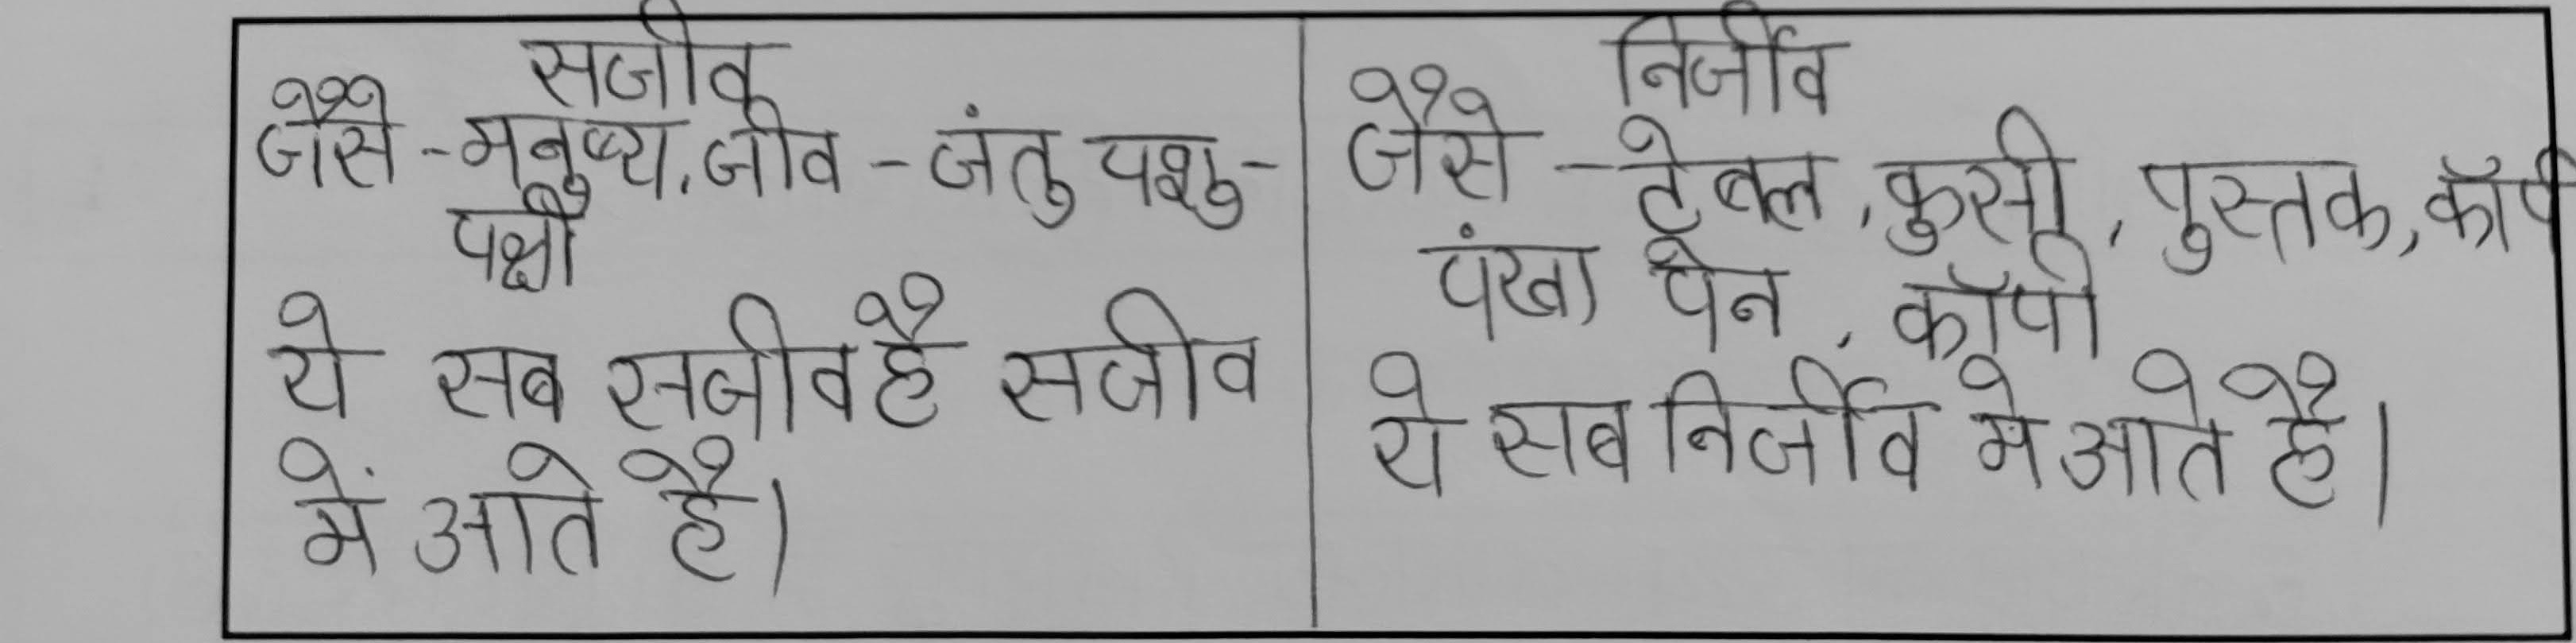 सजीव
जैसे - मनुष्य, जीव - जंतु पशु -
पक्षी
ये सब सजीव है सजीव
में आते है।
निर्जीव
जैसे - टेबल, कुर्सी, पुस्तक, कॉपी
पंखा पेन, कॉपी
ये सब निर्जीव मे आते है।